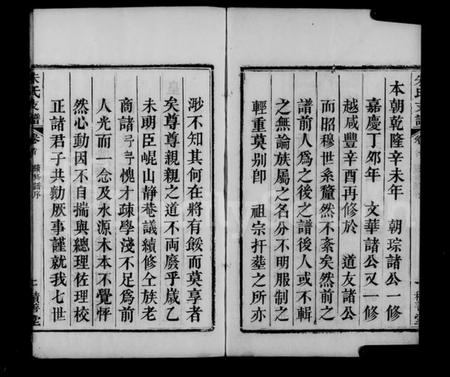 本朝乾隆辛未年　朝琮諸公一修
嘉慶丁夘年　文華諸公又一修
越咸豐辛酉再修於　道友諸公
而昭穆世系釐然不紊矣然前之
譜前人爲之後之譜後人或不輯
之無論族屬之名分不明服制之
輕重莫别卽　祖宗扞塟之所亦
渺不知其何在將有餒而莫享者
矣尊尊親親之道不兩廢乎歲乙
未明臣崐山静巷議續修仝族老
商諸　愧才疎學淺不足爲前
人光而一念及水源木本不覺怦
然心動因不自揣與總理佐理校
正諸君子共勷厥事謹就我七世
朱氏支譜
卷首
續修譜序